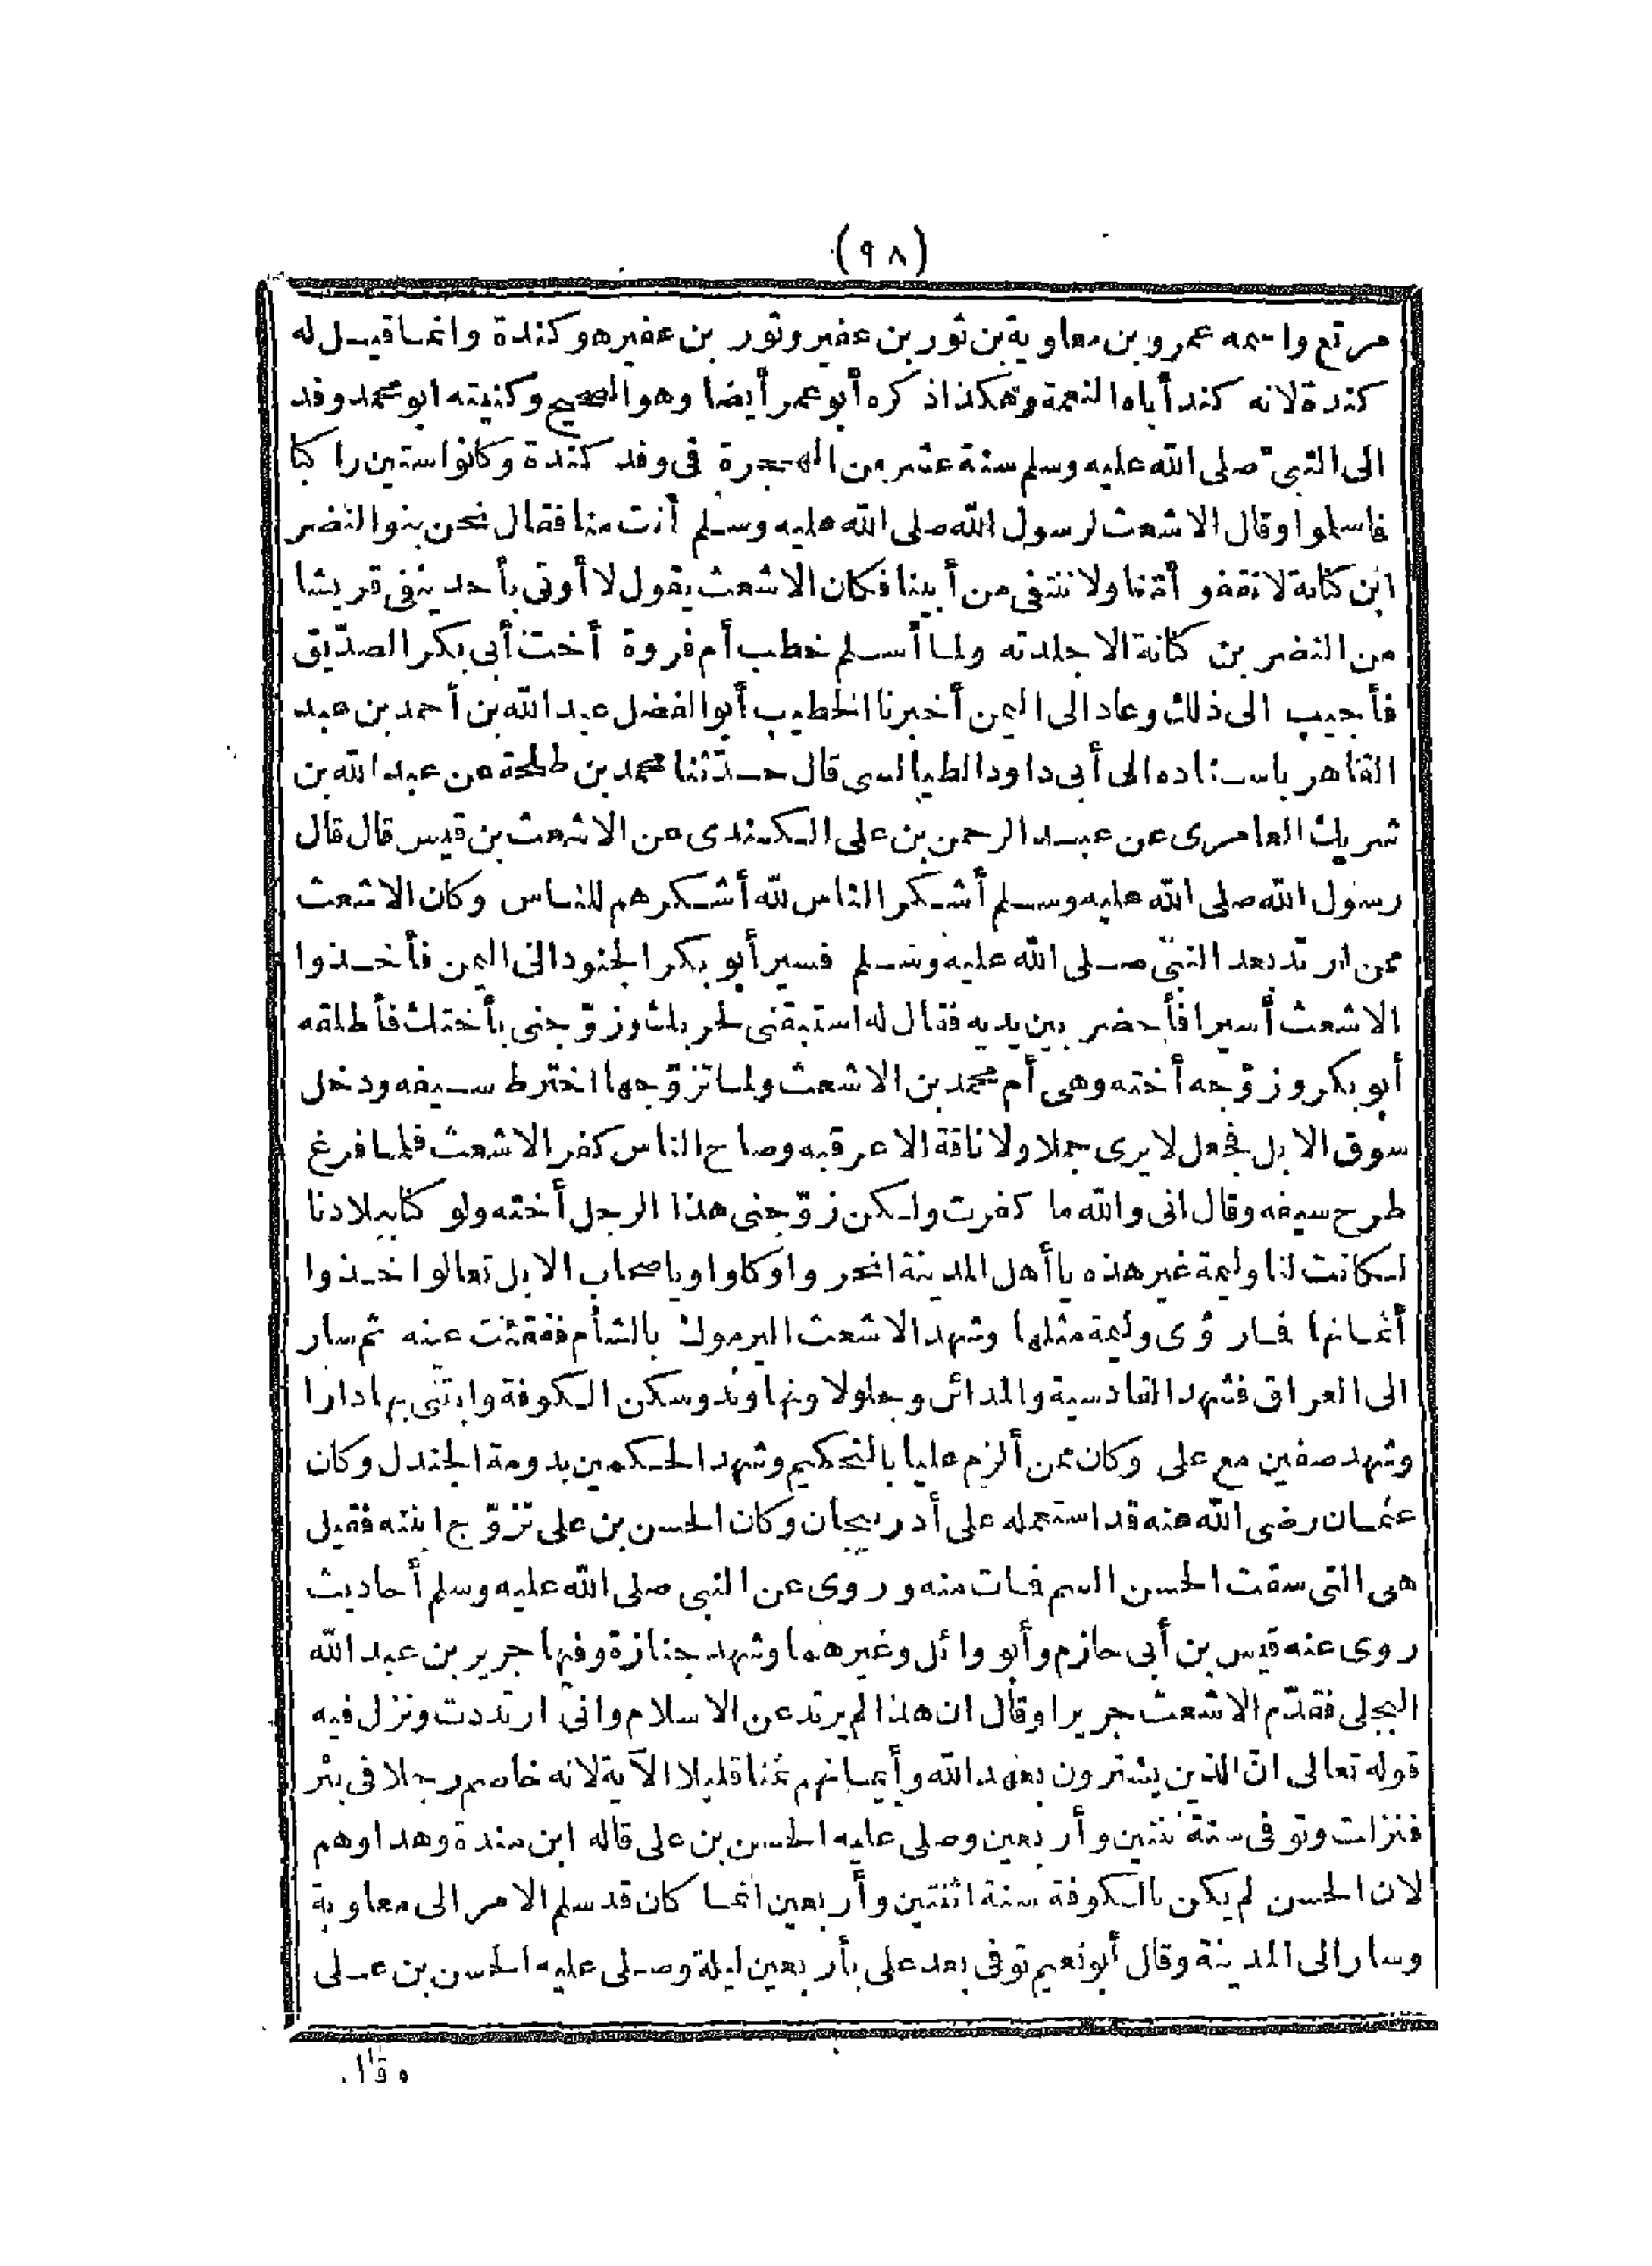 (٩٨)
مرتع واسمه عمرو بن معاوية بن ثور بن عفير وثور بن عفير هو كندة وانما قيل له
كندة لانه كند أباه النعمة وهكذا ذكره أبو عمر أيضا وهو الصحيح وكنيته ابو محمد وفد
الى النبيّ صلى الله عليه وسلم سنة عشر من الهجرة فى وفد كندة وكانوا ستين راكبا
فاسلوا وقال الاشعث لرسول الله صلى الله عليه وسلم أنت منا فقال نحن بنو النضر
ابن كنانة لا نقفو أمّنا ولا ننتفى من أبينا فكان الاشعث يقول لا أوتى بأحد ينفى قريشا
من النضر بن كنانة الا جلدته ولما أسلم خطب أم فروة أخت أبى بكر الصدّيق
فأجيب الى ذلك وعاد الى اليمن أخبرنا الخطيب أبو الفضل عبد الله بن أحمد بن عبد
القاهر باسناده الى أبى داود الطيالسى قال حدّثنا محمد بن طلحة عن عبد الله بن
شريك العامرى عن عبد الرحمن بن على الكندى عن الاشعث بن قيس قال قال
رسول الله صلى الله عليه وسلم أشكر الناس لله أشكرهم للناس وكان الاشعث
ممن ارتدّ بعد النبىّ صلى الله عليه وسلم فسير أبو بكر الجنود الى اليمن فأخذوا
الاشعث أسيرا فأحضر بين يديه فقال له استبقنى لحربك وزوّجنى بأختك فأطلقه
أبو بكر وزوّجه أخته وهى أم محمد بن الاشعث ولما تزوّجها اخترط سيفه ودخل
سوق الابل فجعل لا يرى جملا ولا ناقة الا عرقبه وصاح الناس كفر الاشعث فلما فرغ
طرح سيفه وقال انى والله ما كفرت ولكن زوّجنى هذا الرجل أخته ولو كنا ببلادنا
لكانت لنا وليمة غير هذه يا أهل المدينة انحروا وكلوا ويا صحاب الابل تعالوا خذوا
أثمانها فما رؤى وليمة مثلها وشهد الاشعث اليرموك بالشأم ففقئت عينه ثم سار
الى العراق فشهد القادسية والمدائن وجلولا ونهاوند وسكن الكوفة وابتنى بها دارا
وشهد صفين مع على وكان ممن ألزم عليا بالتحكيم وشهد الحكمين بدومة الجندل وكان
عثمان رضى الله عنه قد استعمله على أذربيجان وكان الحسن بن على تزوّج ابنته فقيل
هى التى سقت الحسن السم فمات منه وروى عن النبى صلى الله عليه وسلم أحاديث
روى عنه قيس بن أبى حازم وأبو وائل وغيرهما وشهد جنازة وفيها جرير بن عبد الله
البجلى فقدّم الاشعث جريرا وقال ان هذا لم يرتد عن الاسلام وانى ارتددت ونزل فيه
قوله تعالى انّ الذين يشترون بعهد الله وأيمانهم ثمنا قليلا الآية لانه خاصم رجلا فى بئر
فنزلت وتوفى سنة ثنتين وأربعين وصلى عليه الحسن بن على قاله ابن مندة وهذا وهم
لان الحسن لم يكن بالكوفة سنة اثنتين وأربعين انما كان قد سلم الامر الى معاوية
وسار الى المدينة وقال أبو نعيم توفى بعد على بأربعين ليلة وصلى عليه الحسن بن على